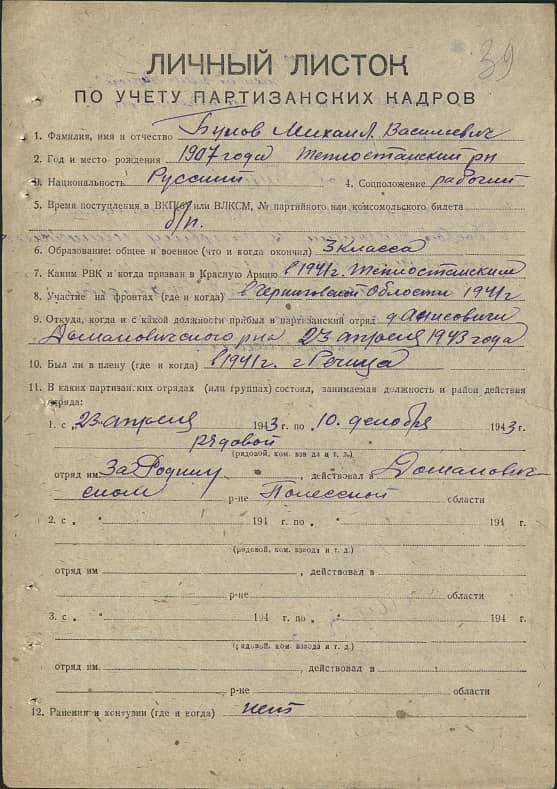 39
ЛИЧНЫЙ ЛИСТОК
ПО УЧЕТУ ПАРТИЗАНСКИХ КАДРОВ
1. Фамилия, имя и отчество Бунов Михаил Василиевич
2. Год и место рождения 1907 года Теплостанский рн
3. Национальность Русский 4. Соцположение рабочий
5. Время поступления в ВКП(б) или ВЛКСМ, № партийного или комсомольского билета
б/п.
6. Образование: общее и военное (что и когда окончил) 3 класса
7. Каким РВК и когда призван в Красную Армию в 1941 г. Теплостанским
8. Участие на фронтах (где и когда) в Черниговской Области 1941 г
9. Откуда, когда и с какой должности прибыл в партизанский отряд д Анисовичи
Домановичского рна 23 апреля 1943 года
10. Был ли в плену (где и когда) в 1941 г. г Речица
11. В каких партизанских отрядах (или группах) состоял, занимаемая должность и район действия
отряда:
1. с „23" апреля 1943 г. по „10. декабря 1943 г.
рядовой
(рядовой, ком. взвода и т. д.)
отряд им За Родину, действовал в Доманович-
ском р-не Полесской области
2. с „ " 194 г. по „ " 194 г.
(рядовой, ком. взвода и т. д.)
отряд им , действовал в
р-не области
3. с „ " 194 г. по „ " 194 г.
(рядовой, ком. взвода и т. д.)
отряд им , действовал в
р-не области
12. Ранения и контузии (где и когда) нет